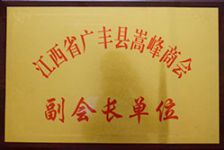 江西省广丰县嵩峰商会
副会长单位